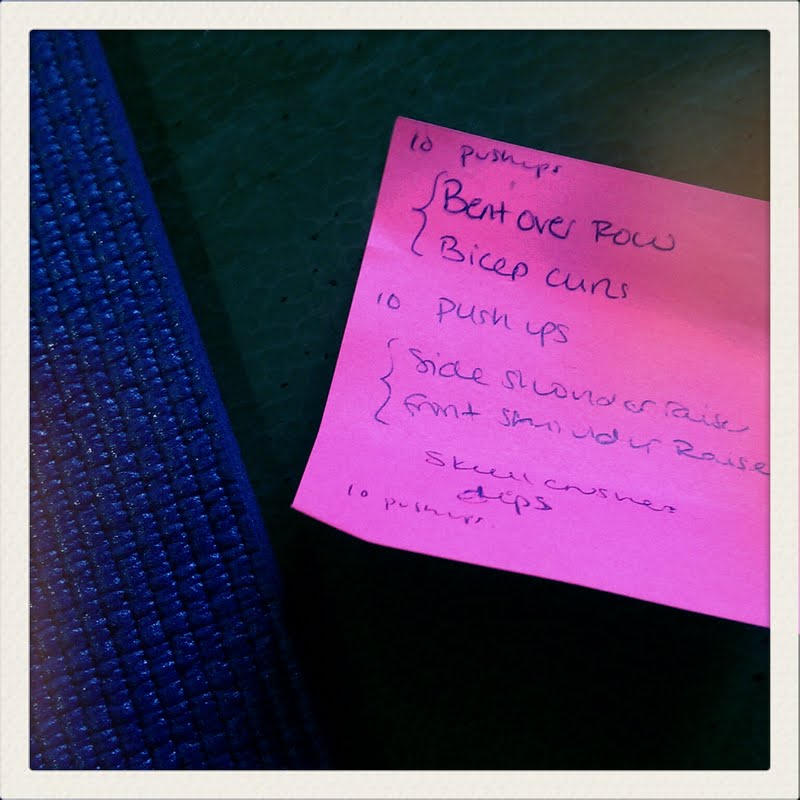 10 pushups
Bent over Row
Bicep curls
10 push ups
Side shoulder raise
front shoulder Raise
Skull crushers
dips
10 pushups